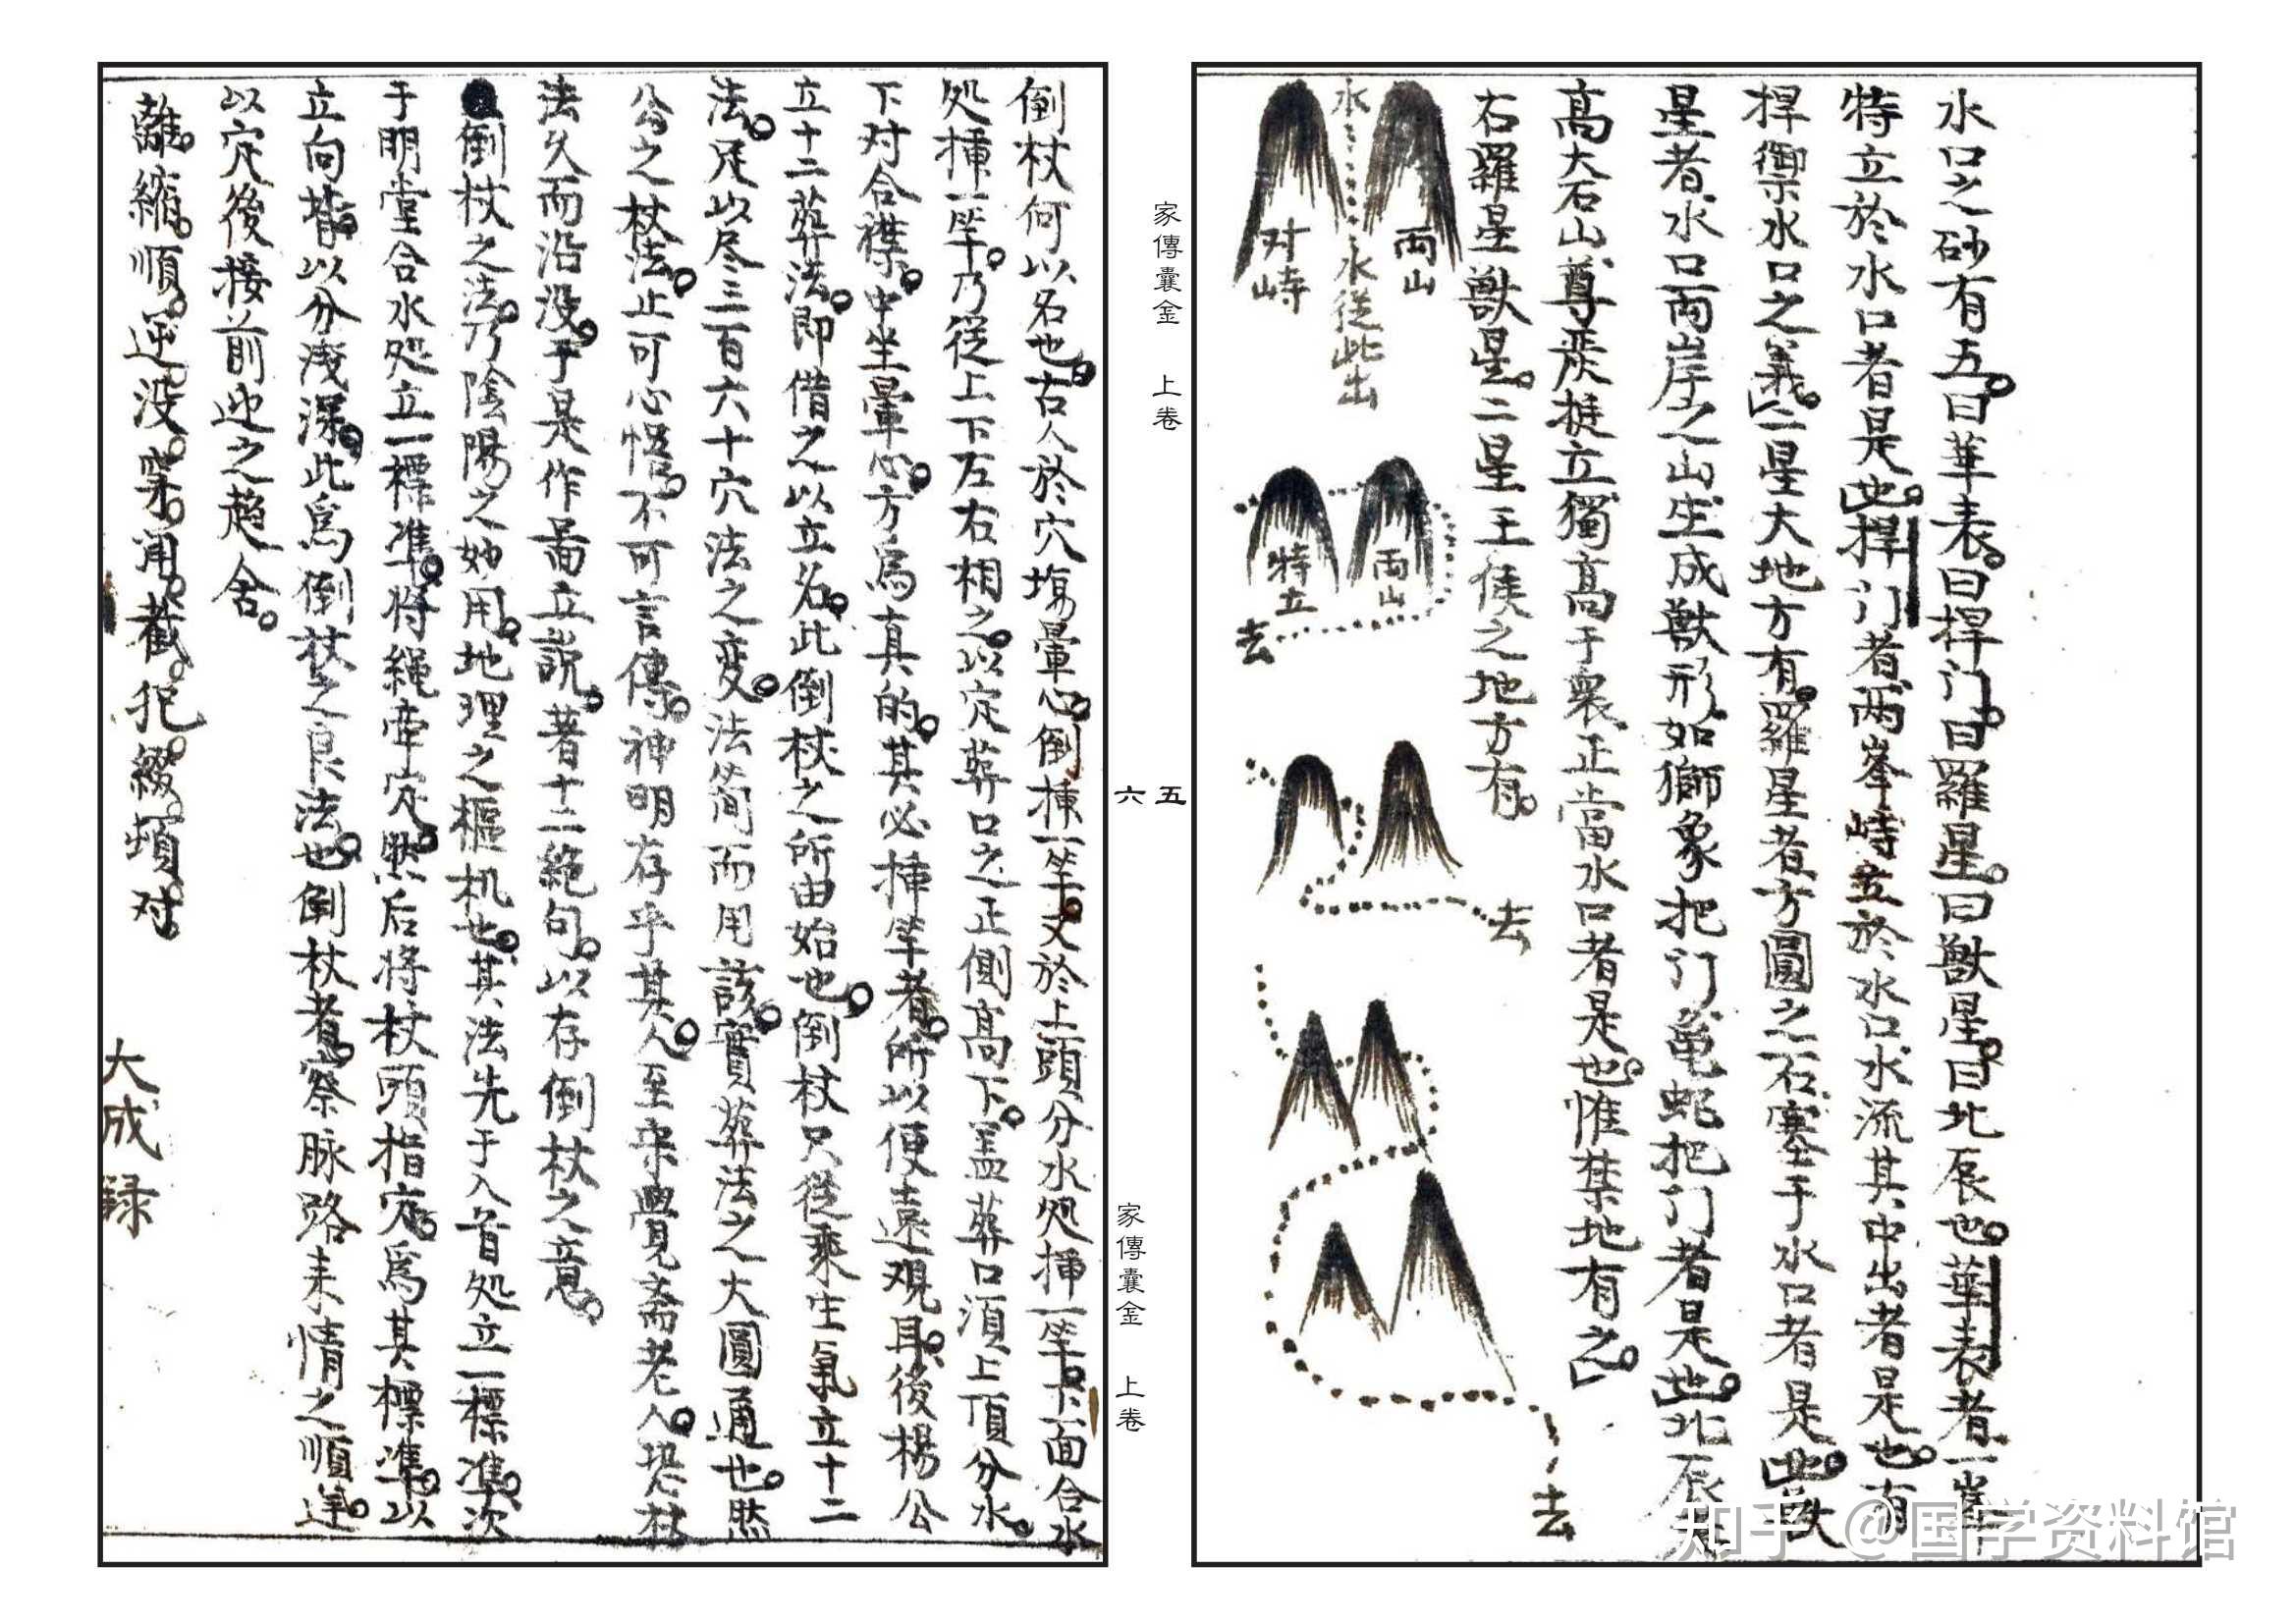 水口之砂有五曰華表曰捍门曰羅星曰獸星曰北辰也華表者一峯
特立於水口者是也捍门者两峯峙立於水口水流其中出者是也有
捍禦水口之義二星大地方有羅星者方圓之石塞于水口者是也獸
星者水口両岸之山生成獸形如獅象把门亀蛇把门者是也北辰者
高大石山尊嚴挺立獨高于衆正當水口者是也惟禁地有之
右羅星獸星二星王侯之地方有
両山
对峙
水
水從此出
両山
特立
去
去
去
家傳囊金 上卷
五
六
家傳囊金 上卷
倒杖何以名也古人於穴塲暈心倒揷一竿又於上頭分水処揷一竿下面合水
処揷一竿乃從上下左右相之以定葬口之正側高下盖葬口須上頂分水
下对合襟中坐暈心方爲真的其必揷竿者所以便遠观耳後楊公
立十二葬法即借之以立名此倒杖之所由始也倒杖只從乘生氣立十二
法足以尽三百六十穴法之变法简而用該實葬法之大圓通也然
公之杖法止可心悟不可言傳神明存乎其人至宋興見斎老人恐杖
法久而沿没于是作啚立説著十二絶句以存倒杖之意
倒杖之法乃陰陽之妙用地理之樞机也其法先于入首処立一標准次
于明堂合水処立一標准将繩牵定然后将杖頭指定爲其標準以
立向背以分浅深此爲倒杖之良法也倒杖者察脉路来情之順逆
以定後接前迎之趋舍
離縮順逆没穿開截犯綴頓对
大成録
知乎 @国学资料馆